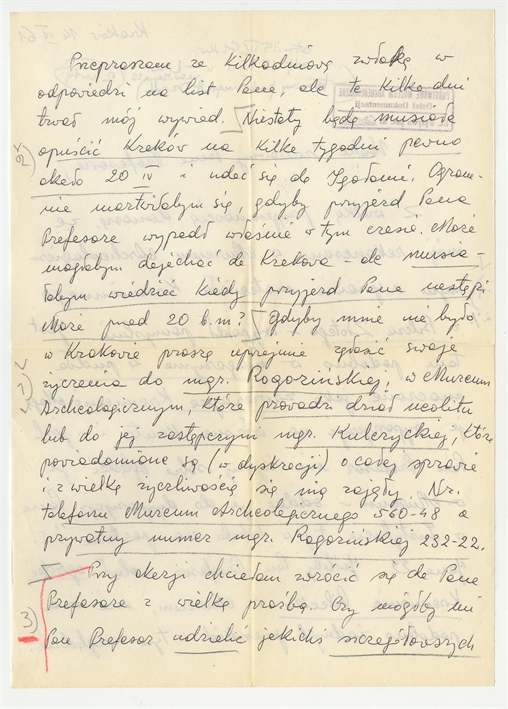 Przepraszam za kilkadniową zwłokę w
odpowiedzi na list Pana, ale te kilka dni
trwał mój wywiad. Niestety będę musiała
opuścić Kraków na kilka tygodni pewno
około 20 IV i udać się do Igołomi. Ogrom-
nie martwiłabym się, gdyby przyjazd Pana
Profesora wypadł właśnie w tym czasie. Może
mogłabym dojechać do Krakowa ale musia-
łabym wiedzieć kiedy przyjazd Pana nastąpi
Może przed 20 b.m? Gdyby mnie nie było
w Krakowie proszę uprzejmie zgłosić swoje
życzenia do mgr. Rogozińskiej, w Muzeum
Archeologicznym, która prowadzi dział neolitu
lub do jej zastępczyni mgr. Kulczyckiej, które
powiadomione są (w dyskrecji) o całej sprawie
i z wielką życzliwością się nią zajęły. Nr.
telefonu Muzeum Archeologicznego 560-48 a
prywatny numer mgr. Rogozińskiej 232-22.
Przy okazji chciałam zwrócić się do Pana
Profesora z wielką prośbą. Czy mógłby mi
3) Pan Profesor udzielić jakichś szczegółowszych